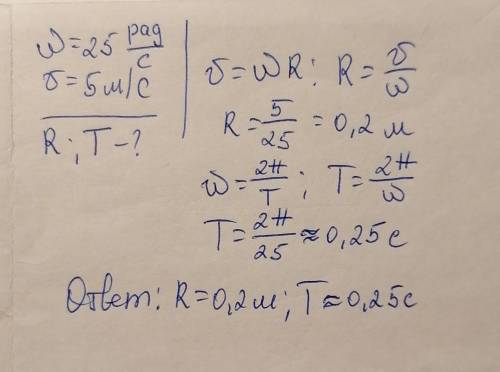 ω = 25 рад/с
υ = 5 м/с
R; T - ?
υ = ωR; R = υ/ω
R = 5/25 = 0,2 м
ω = 2π/T; T = 2π/ω
T = 2π/25 ≈ 0,25 с
Ответ: R = 0,2 м; T ≈ 0,25 с